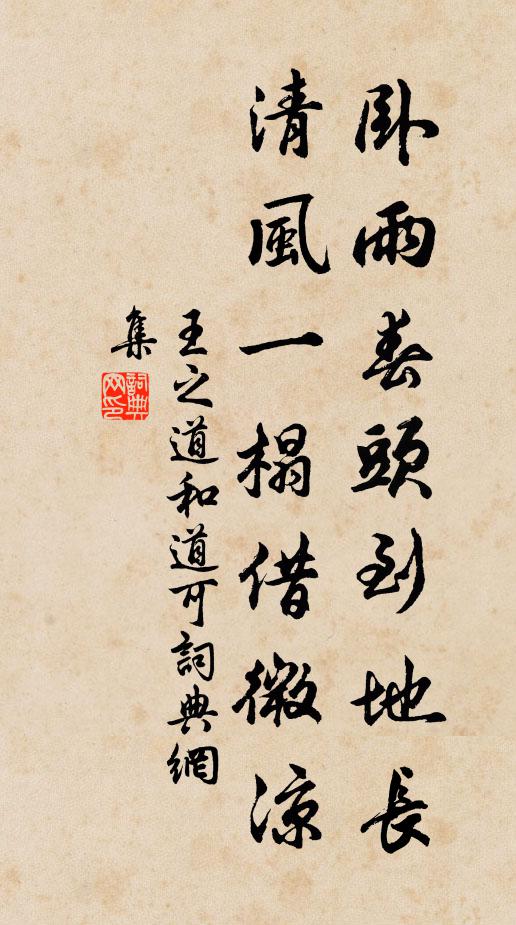 卧雨春頭到地長
清風一榻借微涼
王之道和道可詞典網
集
詞典網印